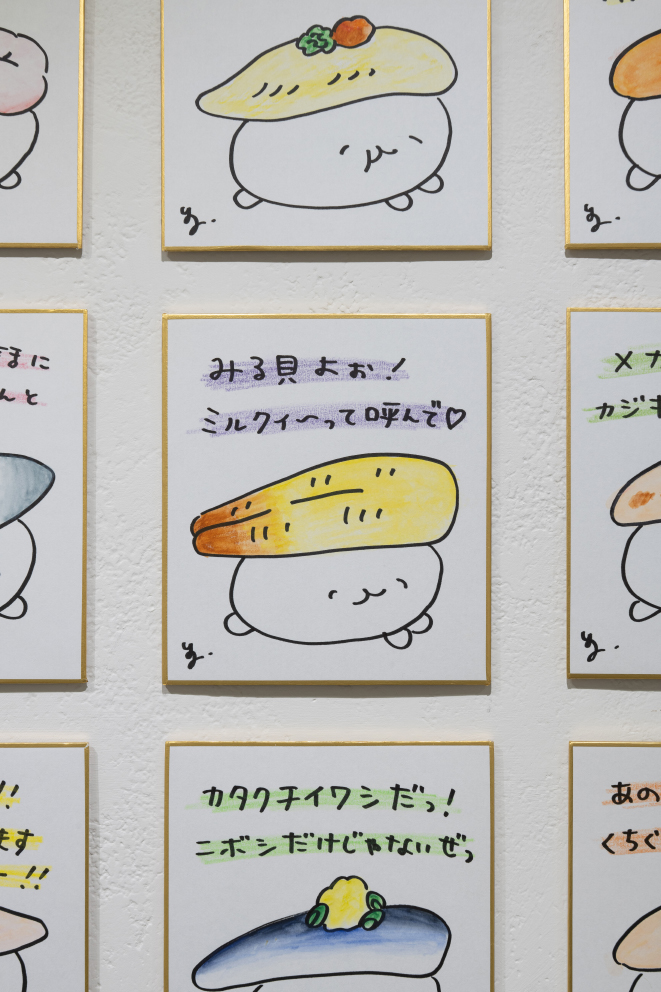 みる貝よぉ!
ミルクィ〜って呼んで♡
まに
んと
メカ
カジキ
カタクチイワシだっ!
ニボシだけじゃないぜっ
!!
ます
ー!!
あの
くちぐ